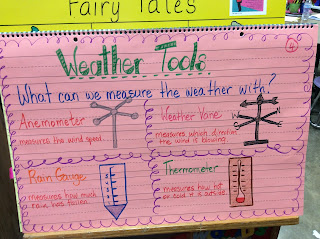 Fairy Tales
4
Weather Tools
What can we measure the weather with?
Anemometer
measures the wind speed.
Weather Vane
measures which direction
the wind is blowing.
Rain Gauge
measures how much
rain has fallen.
Thermometer
measures how hot
or cold it is outside.